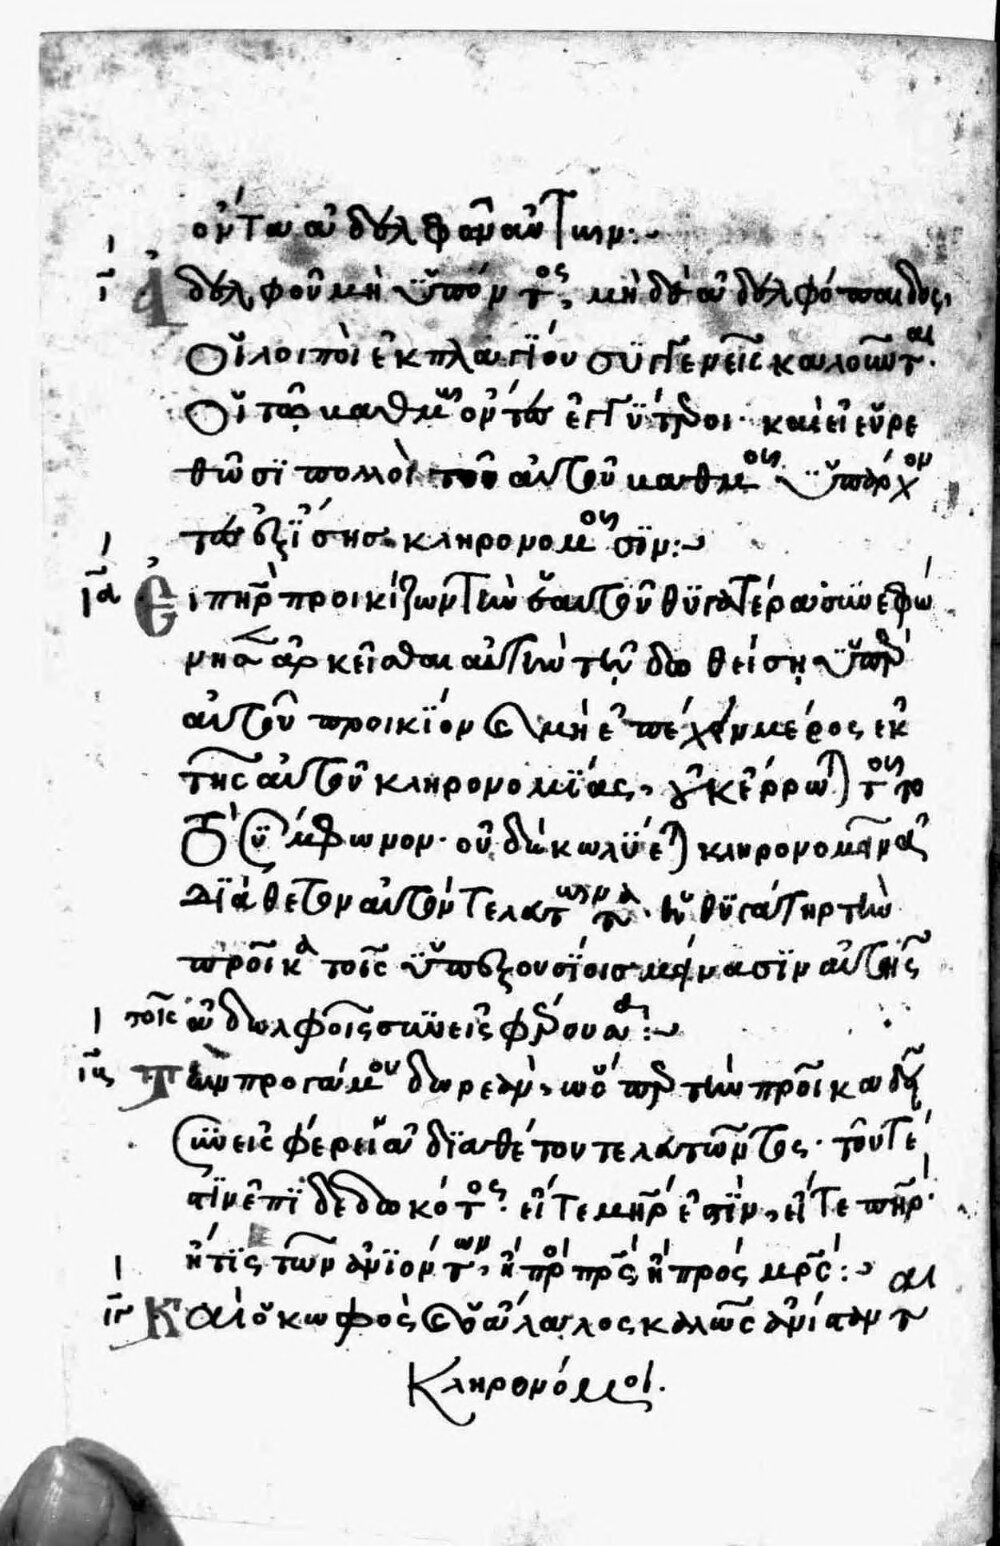 ὄντα ἀδελφὸν αὐτῶν:
ι Ἀδελφοῦ μὴ ὑπόντος, μὴ δὲ ἀδελφόπαιδος,
οἱ λοιποὶ ἐκ πλαγίου συγγενεῖς καλοῦνται.
οἱ τῶ βαθμῶ ὄντες ἐγγύτεροι· καὶ εἰ εὑρε
θῶσι πολλοὶ τοῦ αὐτοῦ βαθμοῦ ὑπάρχον
τες ἐξίσης κληρονομοῦσιν:
ια Εἰ πατὴρ προικίζων τὴν ἑαυτοῦ θυγατέρα συνεφώ
νησεν ἀρκεῖσθαι αὐτὴν τῇ δοθείσῃ ὑπὲρ
αὐτοῦ προικὶ καὶ μὴ ἐπέχειν μέρος ἐκ
τῆς αὐτοῦ κληρονομίας, οὐκ ἔρρωται τοιοῦτο
σύμφωνον· οὐδὲ κωλύεται κληρονομῆσαι
ἀδιάθετον αὐτὸν τελευτῶντα· ἡ θυγάτηρ τὴν
προῖκα τοῖς ὑπεξουσίοις μείνασιν αὐτῆς
τοῖς ἀδελφοῖς συνεισφέρουσα:
ιβ Τὴν προγάμου δωρεὰν, ὥσπερ τὴν προῖκα δεῖ
συνεισφέρειν ἀδιαθέτου τελευτῶντος· τουτέ
στιν ἐπὶ δεδωκότος· εἴτε μήτηρ ἐστὶν, εἴτε πατὴρ·
ἤ τις τῶν ἀνιόντων, ἢ πρὸς πατρὸς, ἢ πρὸς μητρός:
ιγ Καὶ ὁ κωφὸς καὶ ὁ ἄλαλος καλῶς ἀνίστανται
κληρονόμοι.